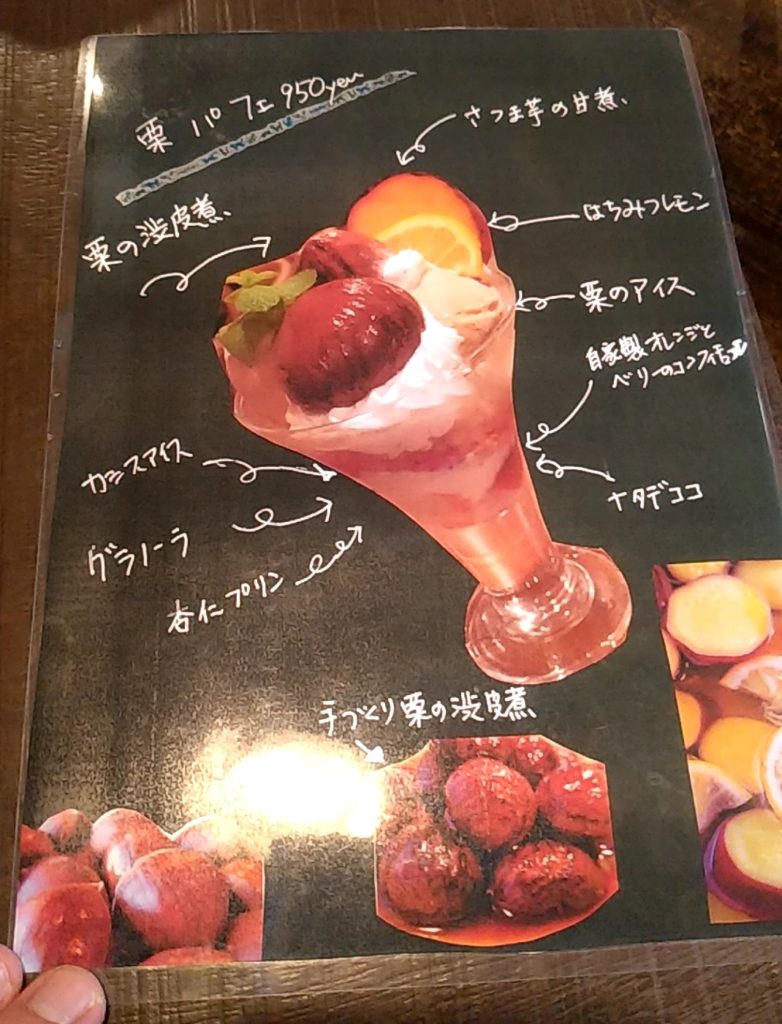 栗パフェ 950yen
さつま芋の甘煮、
栗の渋皮煮、
はちみつレモン
栗のアイス
自家製オレンジと
ベリーのコンフィ
カシスアイス
ナタデココ
グラノーラ
杏仁プリン
手づくり栗の渋皮煮